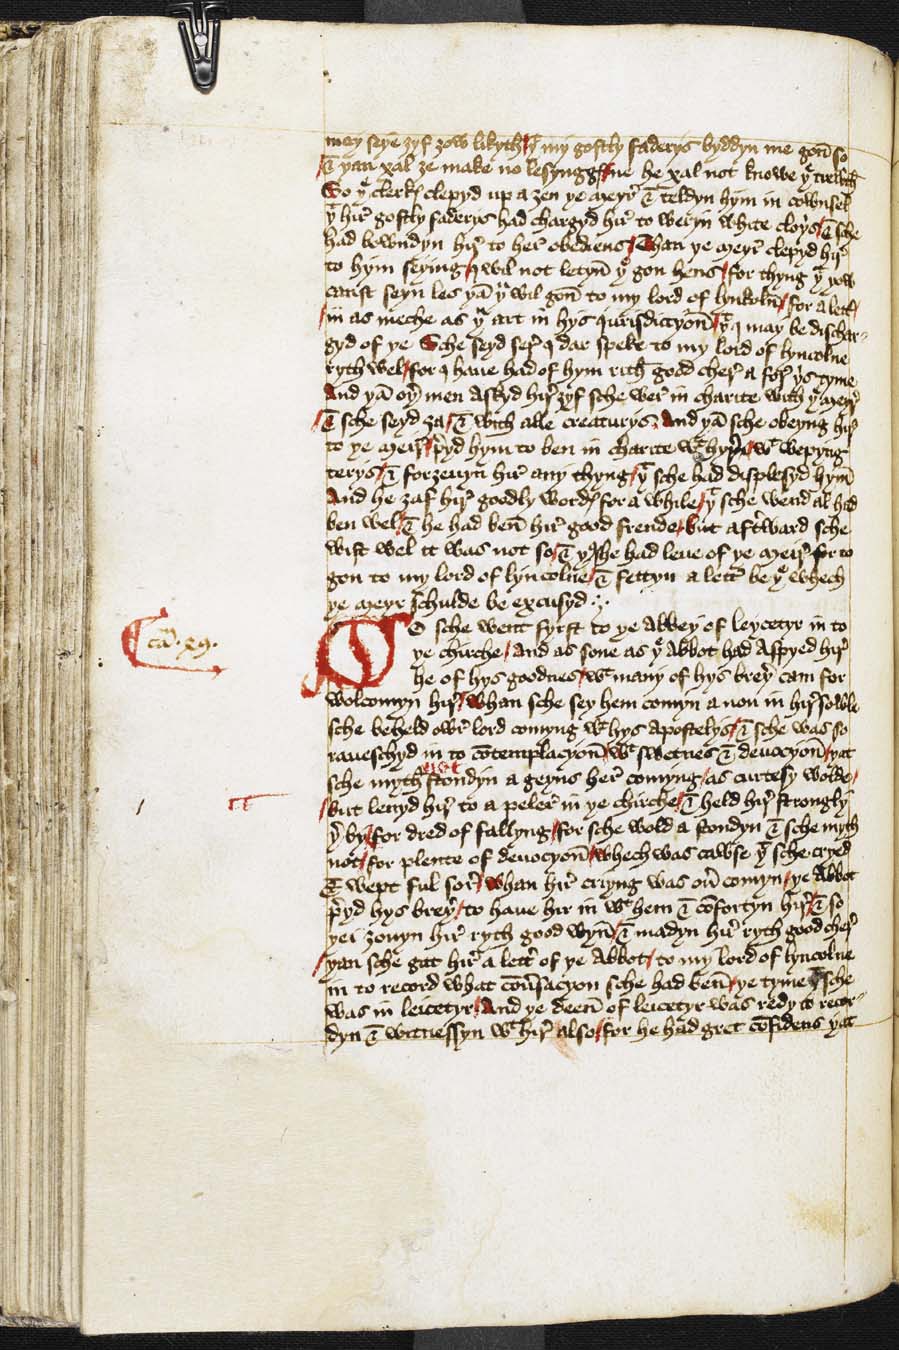 mary seye zyf zow likyth yt my gostly faderys byddyn me gon so
& yan xal ze make no lesynggys ne he xal not knowe ye trewth
So ye clerkys clepyd up a zen ye Meyr & teldyn hym in cownsel
yt hir gostly faderys had chargyd hir to weryn white cloys & sche
had bowndyn hir to her obediens Than ye Meyr clepyd hir
to hym seying I wil not letyn ye gon hens for thyng yt yow
canst seyn les yan yu wil gon to my lord of lynkoln for a lettyr
in as meche as yu art in hys Iurisdiccyon yt I may be dischar-
gyd of ye Sche seyd ser I dar speke to my lord of lyncolne
ryth wel for I haue had of hym rith good cher a for ys tyme
And yan oyr men askyd hir zyf sche wer in charite with ye Meyr
& sche seyd za & with alle creaturys And yan sche obeyng hir
to ye Meyr preyd hym to ben in charite wt hyr wt wepyng
terys & forzeuyn hir any thyng yt sche had displesyd hym
And he zaf hir goodly wordys for a while yt sche wend al had
ben wel & he had ben hir good frende but aftyrward sche
wist wel it was not so & yus sche had leue of ye Meyr for to
gon to my lord of lyncolne & fettyn a lettyr be ye whech
ye Meyr schulde be excusyd
ca. 49.
SO sche went fyrst to ye Abbey of leycetyr in to
ye chirche And as sone as ye Abbot had Aspyed hir
he of hys goodnes wt many of hys breyr cam for
wolcomyn hir whan sche sey hem comyn a non in hir sowle
sche beheld owr lord comyng wt hys apostelys & sche was so
raueschyd in to contemplacyon wt swetnes & deuocyon yat
sche myth not stondyn a geyns her comyng as curtesy wolde
But lenyd hir to a peler in ye chirche & held hir strongly
yer by for dred of fallyng for sche wold a stondyn & sche myth
not for plente of deuocyon whech was cawse yt sche cryed
& wept ful sor whan hir criyng was ouyr comyn ye Abbot
preyd hys breyr to haue hir in wt hem & comfortyn hir & so
yei zouyn hir ryth good wyn & madyn hir ryth good cher
yan sche gat hir a lettyr of ye Abbot to my lord of lyncolne
in to record what conuersacyon sche had ben ye tyme yt sche
was in leicetyr And ye deen of leicetyr was redy to recor-
dyn & witnessyn wt hir also for he had gret confidens yat